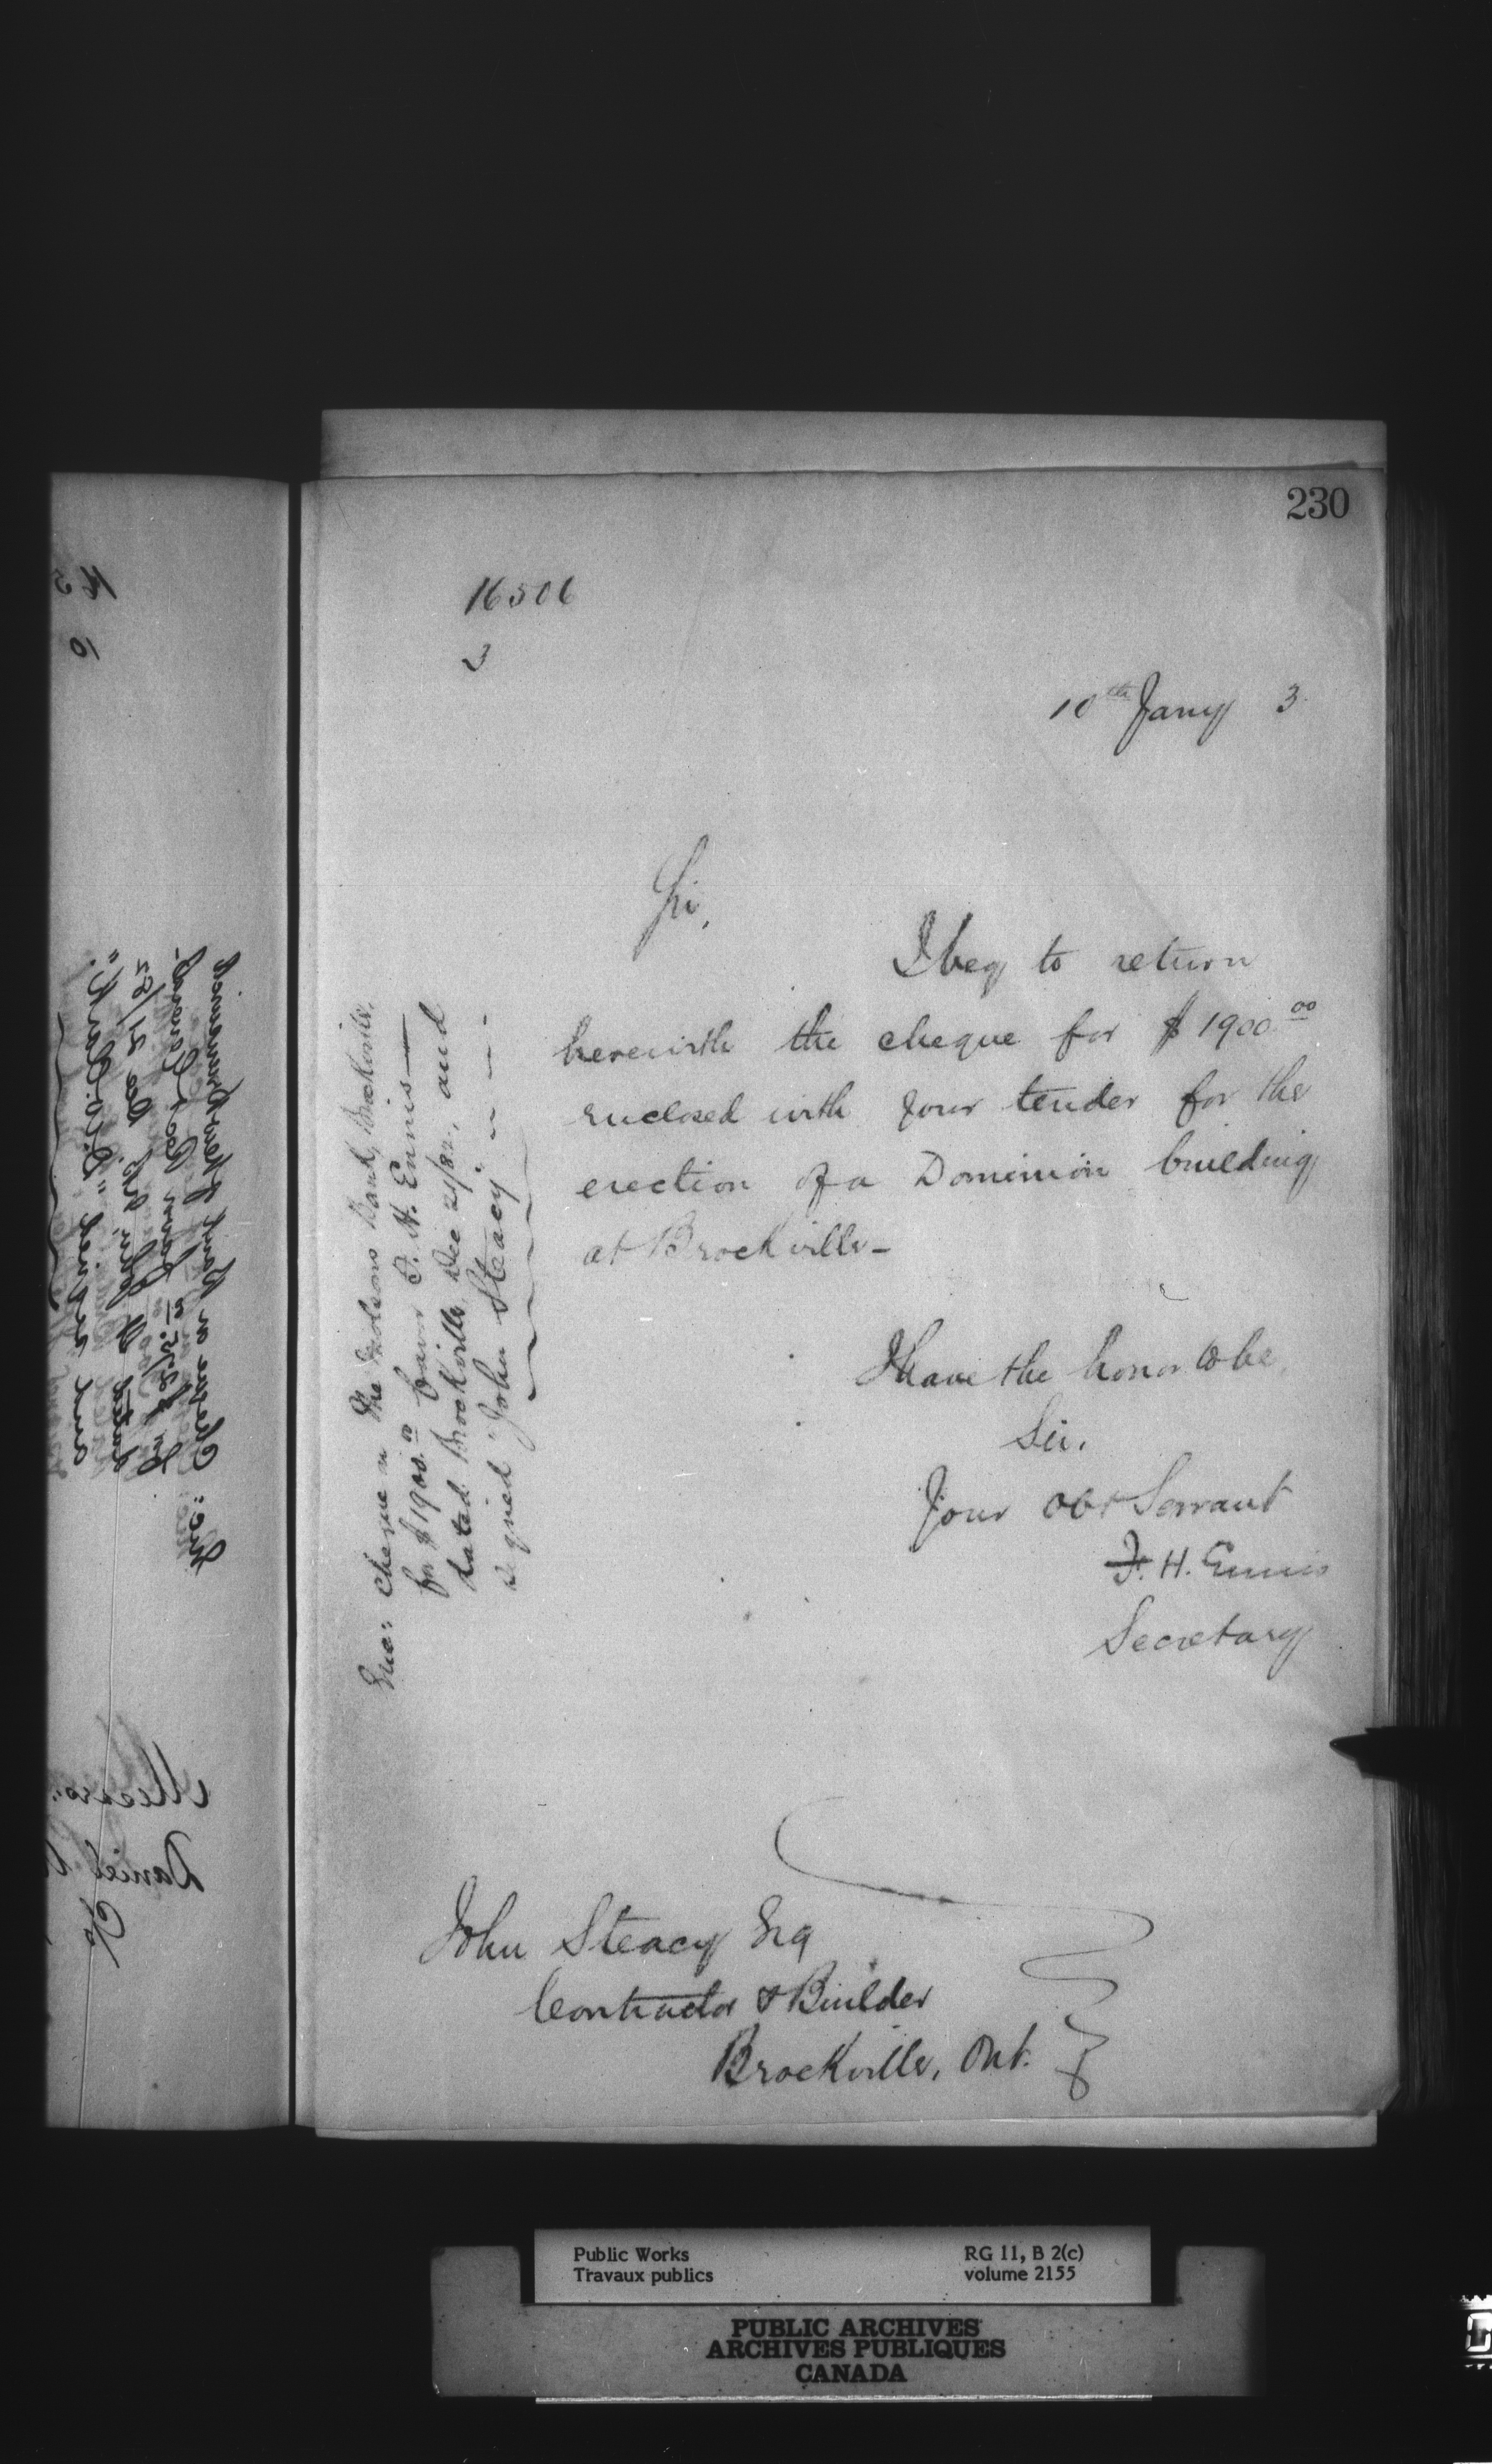 230
16506
3
10th Jany 3
Sir,
I beg to return
herewith the cheque for $1900.00
enclosed with your tender for the
erection of a Dominion building
at Brockville—
I have the honor to be
Sir.
Your obt Servant
F. H. Ennis
Secretary
Enc: Cheque on The Molsons Bank, Brockville.
for $1900.00 favor F. H. Ennis—
dated Brockville Dec 21/82, and
signed "John Steacy"
John Steacy Esq
Contractor & Builder
Brockville, Ont.
165
10
Enc: Cheque on Bank of New Brunswick
dated St John NB Dec 21/82
and signed "D. W. Clark".
Messrs.
Daniel W
Public Works
Travaux publics
RG 11, B 2(c)
volume 2155
PUBLIC ARCHIVES
ARCHIVES PUBLIQUES
CANADA